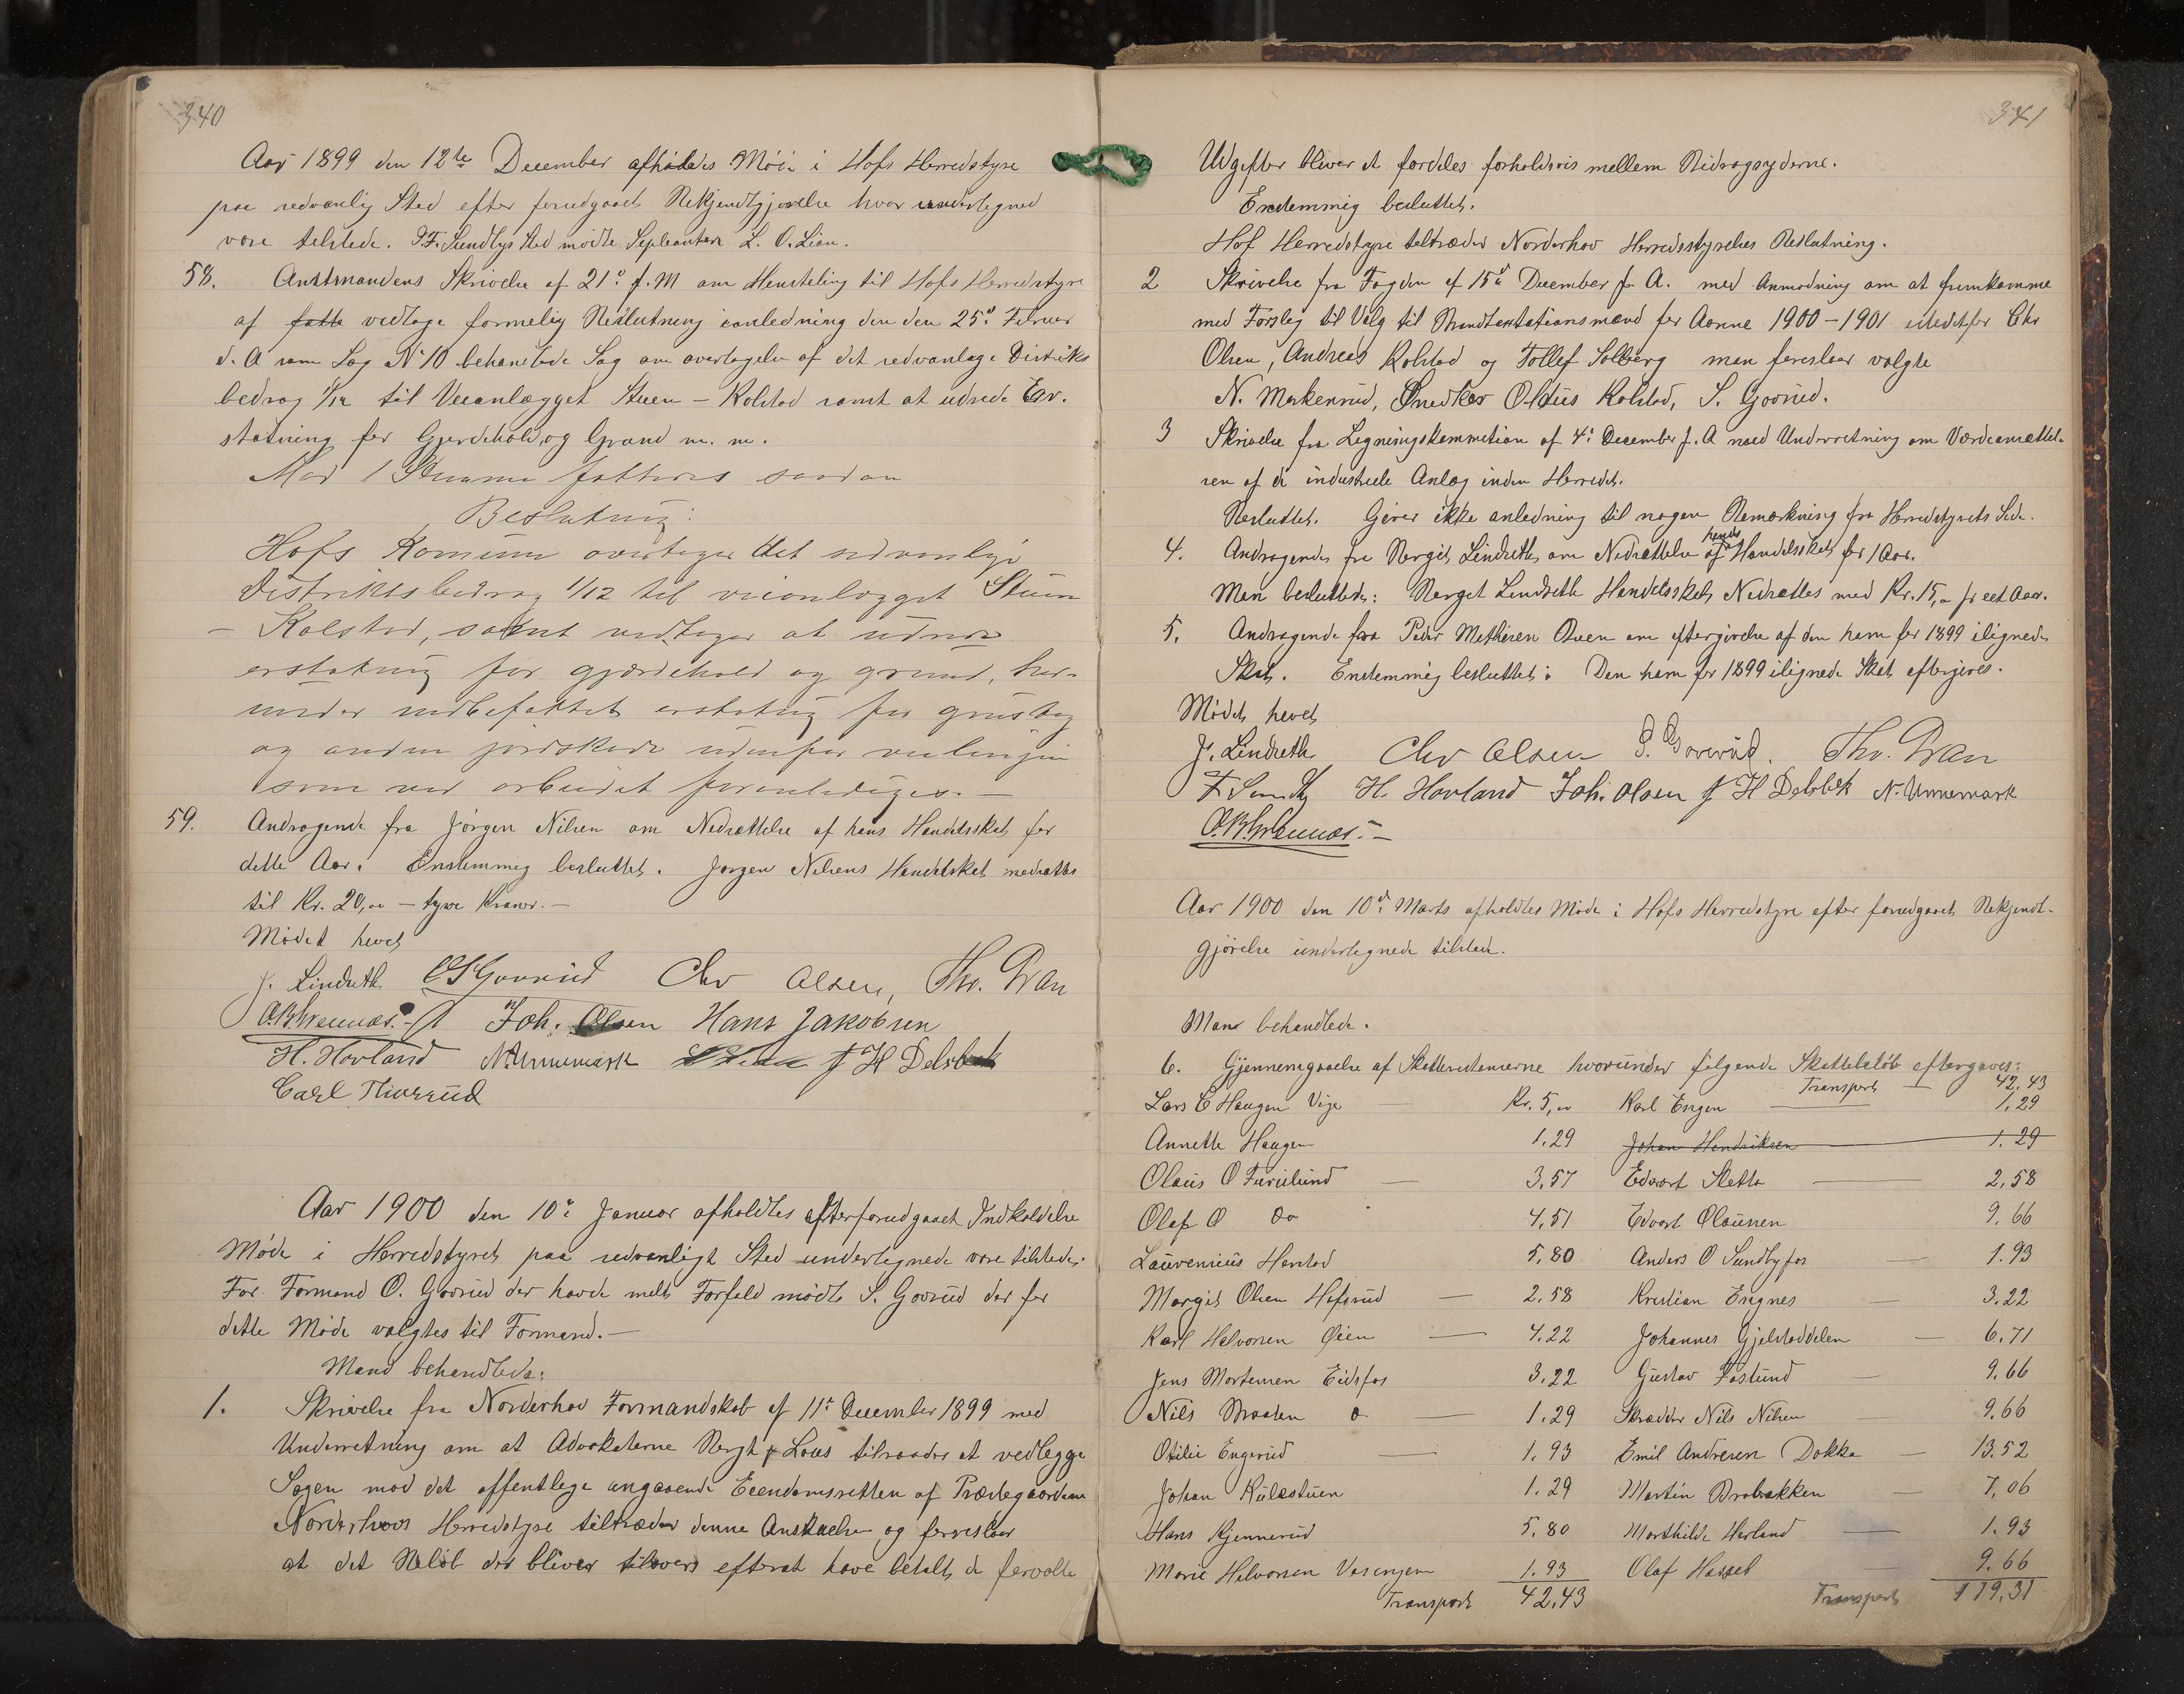 340
Aar 1899 den 12te December afholdes Möde i Hofs Herredstyre
paa sedvanlig Sted efter forudgaaet Bekjendtgjørelse hvor undertegned
vare tilstede. F. Sundbys Sted mødte Supleanten L. O. Lian.
58. Amtmandens Skrivelse af 21de f. M om Henstilling til Hofs Herredstyre
af fatte vedtage formelig Beslutning i anledning den den 25de Februar
d. A som Sag No 10 behandlede Sag om overtagelse af det sedvanlige Distrikts
bedrag 1/12 til Veianlægget Stuen - Kolstad samt at udrede Er.
statning for Gjerdehold og Grund m. m.
Mod 1 Stemme fattedes saadan
Beslutning:
Hofs Komune overtager det sedvanlige
Distriktsbidrag 1/12 til veianlægget Stuen
- Kolstad, samt vedtager at udrede
erstatning for gjærdehold og grund, her-
under indbefattet erstatning for grustag
og anden jordskade udenfor veilinjen
som ved arbeidet foranlediges. -
59. Andragende fra Jörgen Nilsen om Nedsættelse af hans Handelsskat for
dette Aar. Enstemmig besluttet. Jørgen Nilsens Handelsskat nedsættes
til Kr. 20,00 - tyve Kroner. -
Mødet hevet
J. Lindseth O S Goverud Chr Olsen, Thv. Gran
Joh. Olsen Hans Jakobsen
H. Hovland N. Unnemark J H Delsbek
Carl Tiverrud
Aar 1900 den 10de Januar afholdtes efter forudgaaet Indkaldelse
Møde i Herredstyret paa sedvanligt Sted undertegnede vare tilstede.
For Formand O. Goverud der havde meldt Forfald mødte S. Goverud der for
dette Møde valgtes til Formand. -
Mand behandlede:
1. Skrivelse fra Norderhov Formandskab af 11te December 1899 med
Underretning om at Advokaterne Bergh & Lous tilraader at vedlegge
Sagen mod det offentlige angaaende Eiendomsretten af Prestegaardene
Norderhovs Herredstyre tiltræder denne Anskuelse og foreslaar
at det Beløb der bliver tilovers efterat have betalt de forvolte
341
Udgifter bliver at fordeles forholdsvis mellem Bidragsyderne.
Enstemmig besluttet.
Hof Herredstyre tiltræder Norderhov Herredsstyrelses Beslutning.
2 Skrivelse fra Fogden af 15de December f. A. med Anmodning om at fremkomme
med Forslag til Valg til Brandtaxtationsmænd for Aarene 1900-1901 istedetfor Chr
Olsen, Andreas Kolstad og Tollef Solberg man foreslaar valgte
N. Merkenrud, Snedker Olaus Kolstad, S. Goverud.
3 Skrivelse fra Legningskommetion af 4de December f. A med Underretning om Værdiansættel-
sen af de industrielle Anlæg inden Herredet.
Besluttet. Giver ikke anledning til nogen Bemærkning fra Herredstyrets Side.
4. Andragende fra Berget Lindseth om Nedsættelse af hends Handelsskat for 1 Aar.
Man besluttede: Berget Lindseth Handelsskat Nedsættes med Kr. 15,00 for eet Aar.
5. Andragende fra Peder Mathisen Øieren om eftergivelse af den ham for 1899 ilignede
Skat. Enstemmig besluttet: Den ham for 1899 ilignede Skat eftergives.
Mødet hevet
J. Lindseth Chr Olsen S. Goverud. Thv. Gran
F Sundby H. Hovland Joh. Olsen J H Delsbek N. Unnemark
Aar 1900 den 10de Marts afholdtes Møde i Hofs Herredstyre efter forudgaaet Bekjendt-
gjørelse undertegnede tilstede.
Man behandlede.
6. Gjennemgaaelse af Skatterestancerne hvorunder følgende Skattebeløb eftergaves:
Transport 42,43
Lars E Haugen Vigr Kr. 5,00 Karl Engen 1,29
Annette Haugen 1.29 Johan Hendriksen 1.29
Olaus O Furulund 3,57 Edvart Sletta 2,58
Olaf O do 4,51 Edvart Olausen 9.66
Lauvenius Herstad 5,80 Anders O Sundbyfos 1.93
Margit Olsen Hofsrud 2.58 Kristian Engnes 3.22
Karl Halvorsen Øien 4.22 Johannes Gjelstaddalen 6.71
Jens Mortensen Eidsfos 3.22 Gustav Foslund 9.66
Nils Braaten o. 1.29 Skrædder Nils Nilsen 9.66
Otilie Engerud 1.93 Emil Andresen Dokka 13.52
Johan Kulestuen 1.29 Martin Brobakken 7,06
Hans Kjennerud 5.80 Marthilde Herland 1.93
Marie Halvorsen Vasenjen 1.93 Olaf Hassel 9.66
Transport 42,43 Transport 119,31